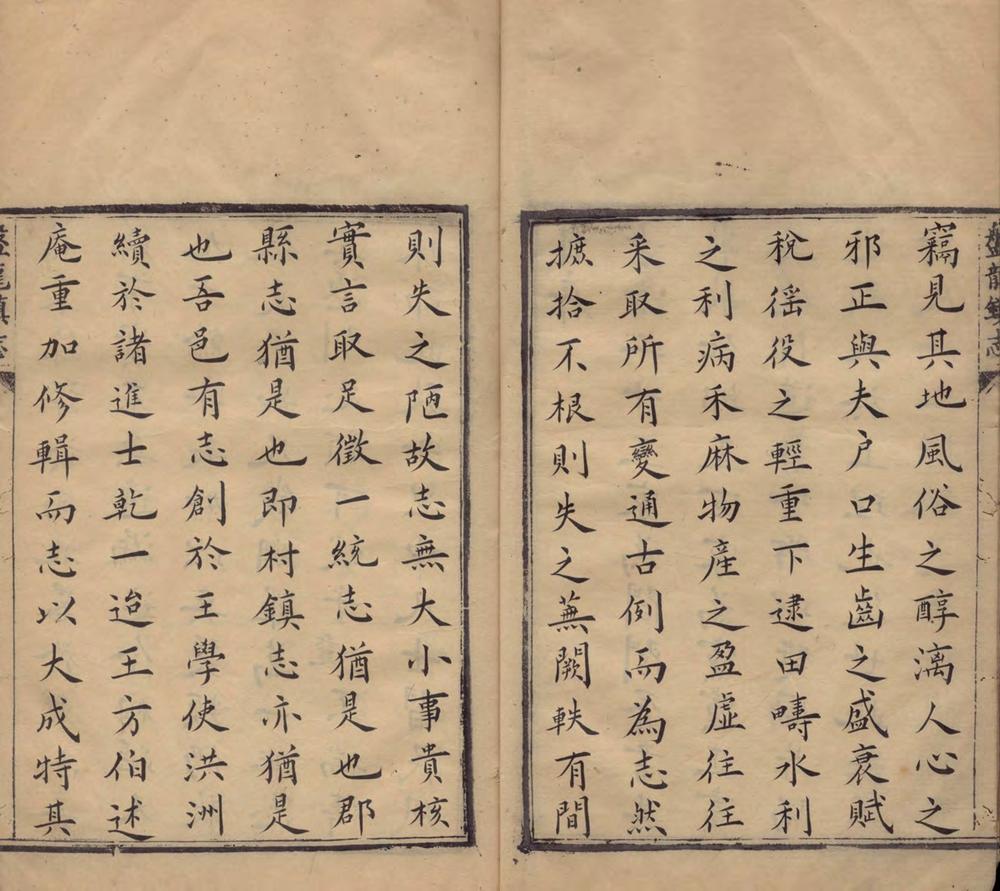 盤龍鎮志
竊見其地風俗之醇漓人心之
邪正與夫户口生齒之盛衰賦
稅徭役之輕重下逮田疇水利
之利病禾麻物產之盈虛往往
采取所有變通古例而為志然
摭拾不根則失之蕪闕軼有間
則失之陋故志無大小事貴核
實言取足徵一統志猶是也郡
縣志猶是也即村鎮志亦猶是
也吾邑有志創於王學使洪洲
續於諸進士乾一迨王方伯述
庵重加修輯而志以大成特其
盤龍鎮志